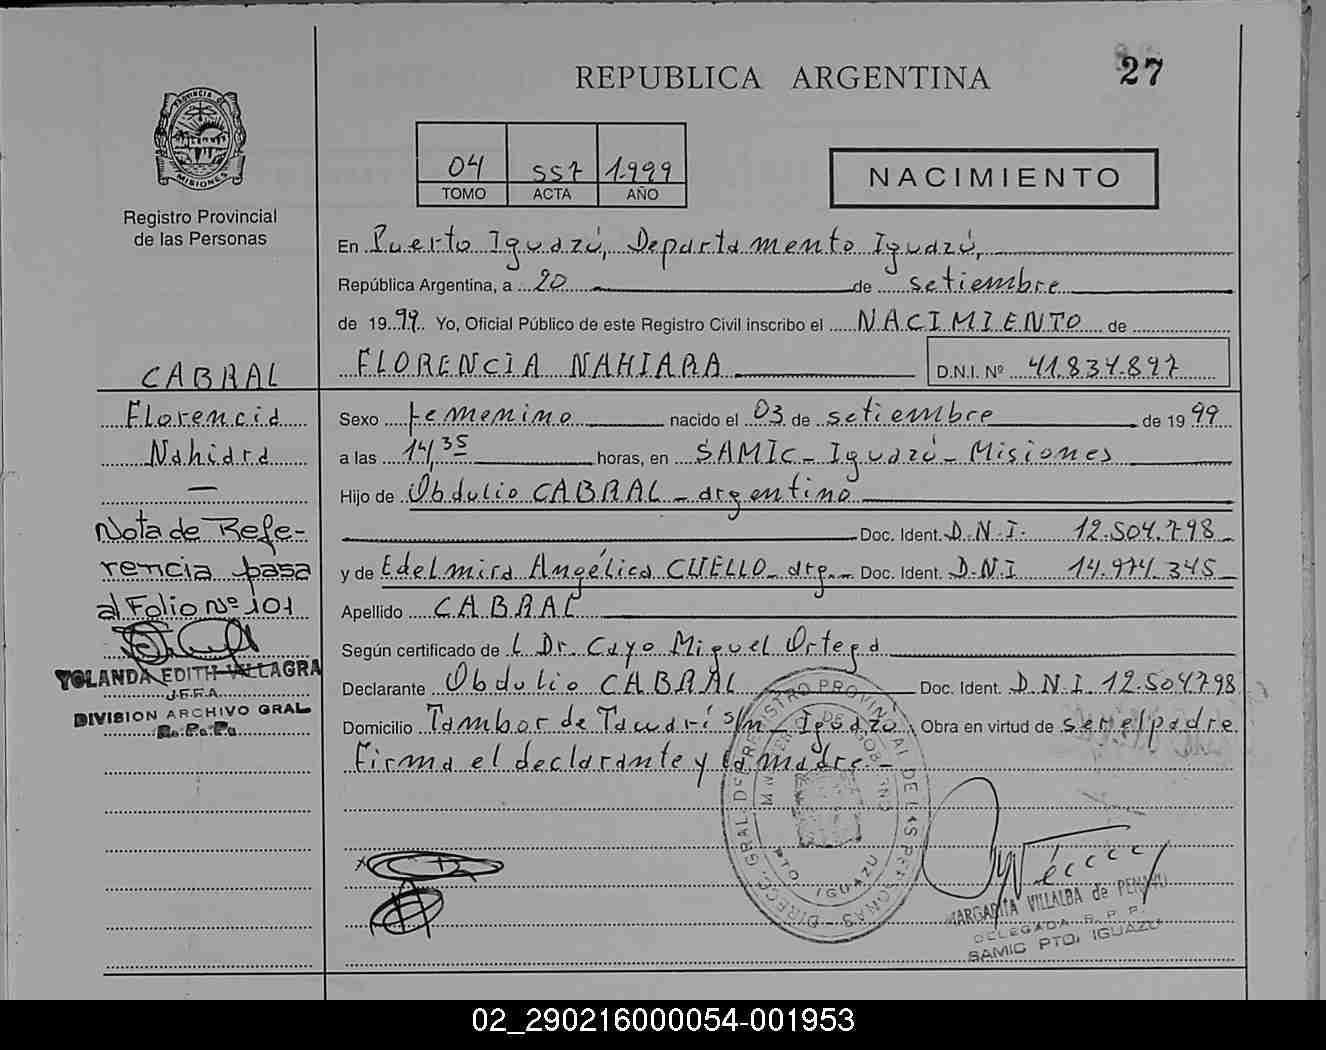 REPUBLICA ARGENTINA
27
PROVINCIA DE
MISIONES
Registro Provincial
de las Personas
04 557 1.999
TOMO ACTA AÑO
NACIMIENTO
En Puerto Iguazú, Departamento Iguazú,
República Argentina, a 20 de setiembre
de 1999 Yo, Oficial Público de este Registro Civil inscribo el NACIMIENTO de
FLORENCIA NAHIARA D.N.I. Nº 41.834.897
CABRAL
Florencia
Nahiara
Nota de Refe-
rencia pasa
al Folio Nº 101
YOLANDA EDITH VILLAGRA
JEFA
DIVISION ARCHIVO GRAL
R. P. P.
Sexo femenino nacido el 03 de setiembre de 1999
a las 14,35 horas, en SAMIC - Iguazú - Misiones
Hijo de Obdulio CABRAL - argentino
Doc. Ident. D.N.I. 12.504.798
y de Edelmira Angélica CUELLO - arg. - Doc. Ident. D.N.I 14.974.345
Apellido CABRAL
Según certificado de L Dr. Cayo Miguel Ortega
Declarante Obdulio CABRAL Doc. Ident. D.N.I. 12.504798
Domicilio Tambor de Tacuarí s/n - Iguazú Obra en virtud de ser el padre
Firma el declarante y la madre -
DIRECC. GRAL. DE REGISTRO PROVINCIAL DE LAS PERSONAS
MINISTERIO DE GOBIERNO
PTO IGUAZU
MARGARITA VILLALBA de
DELEGADA R. P. P.
SAMIC PTO. IGUAZU
02_290216000054-001953